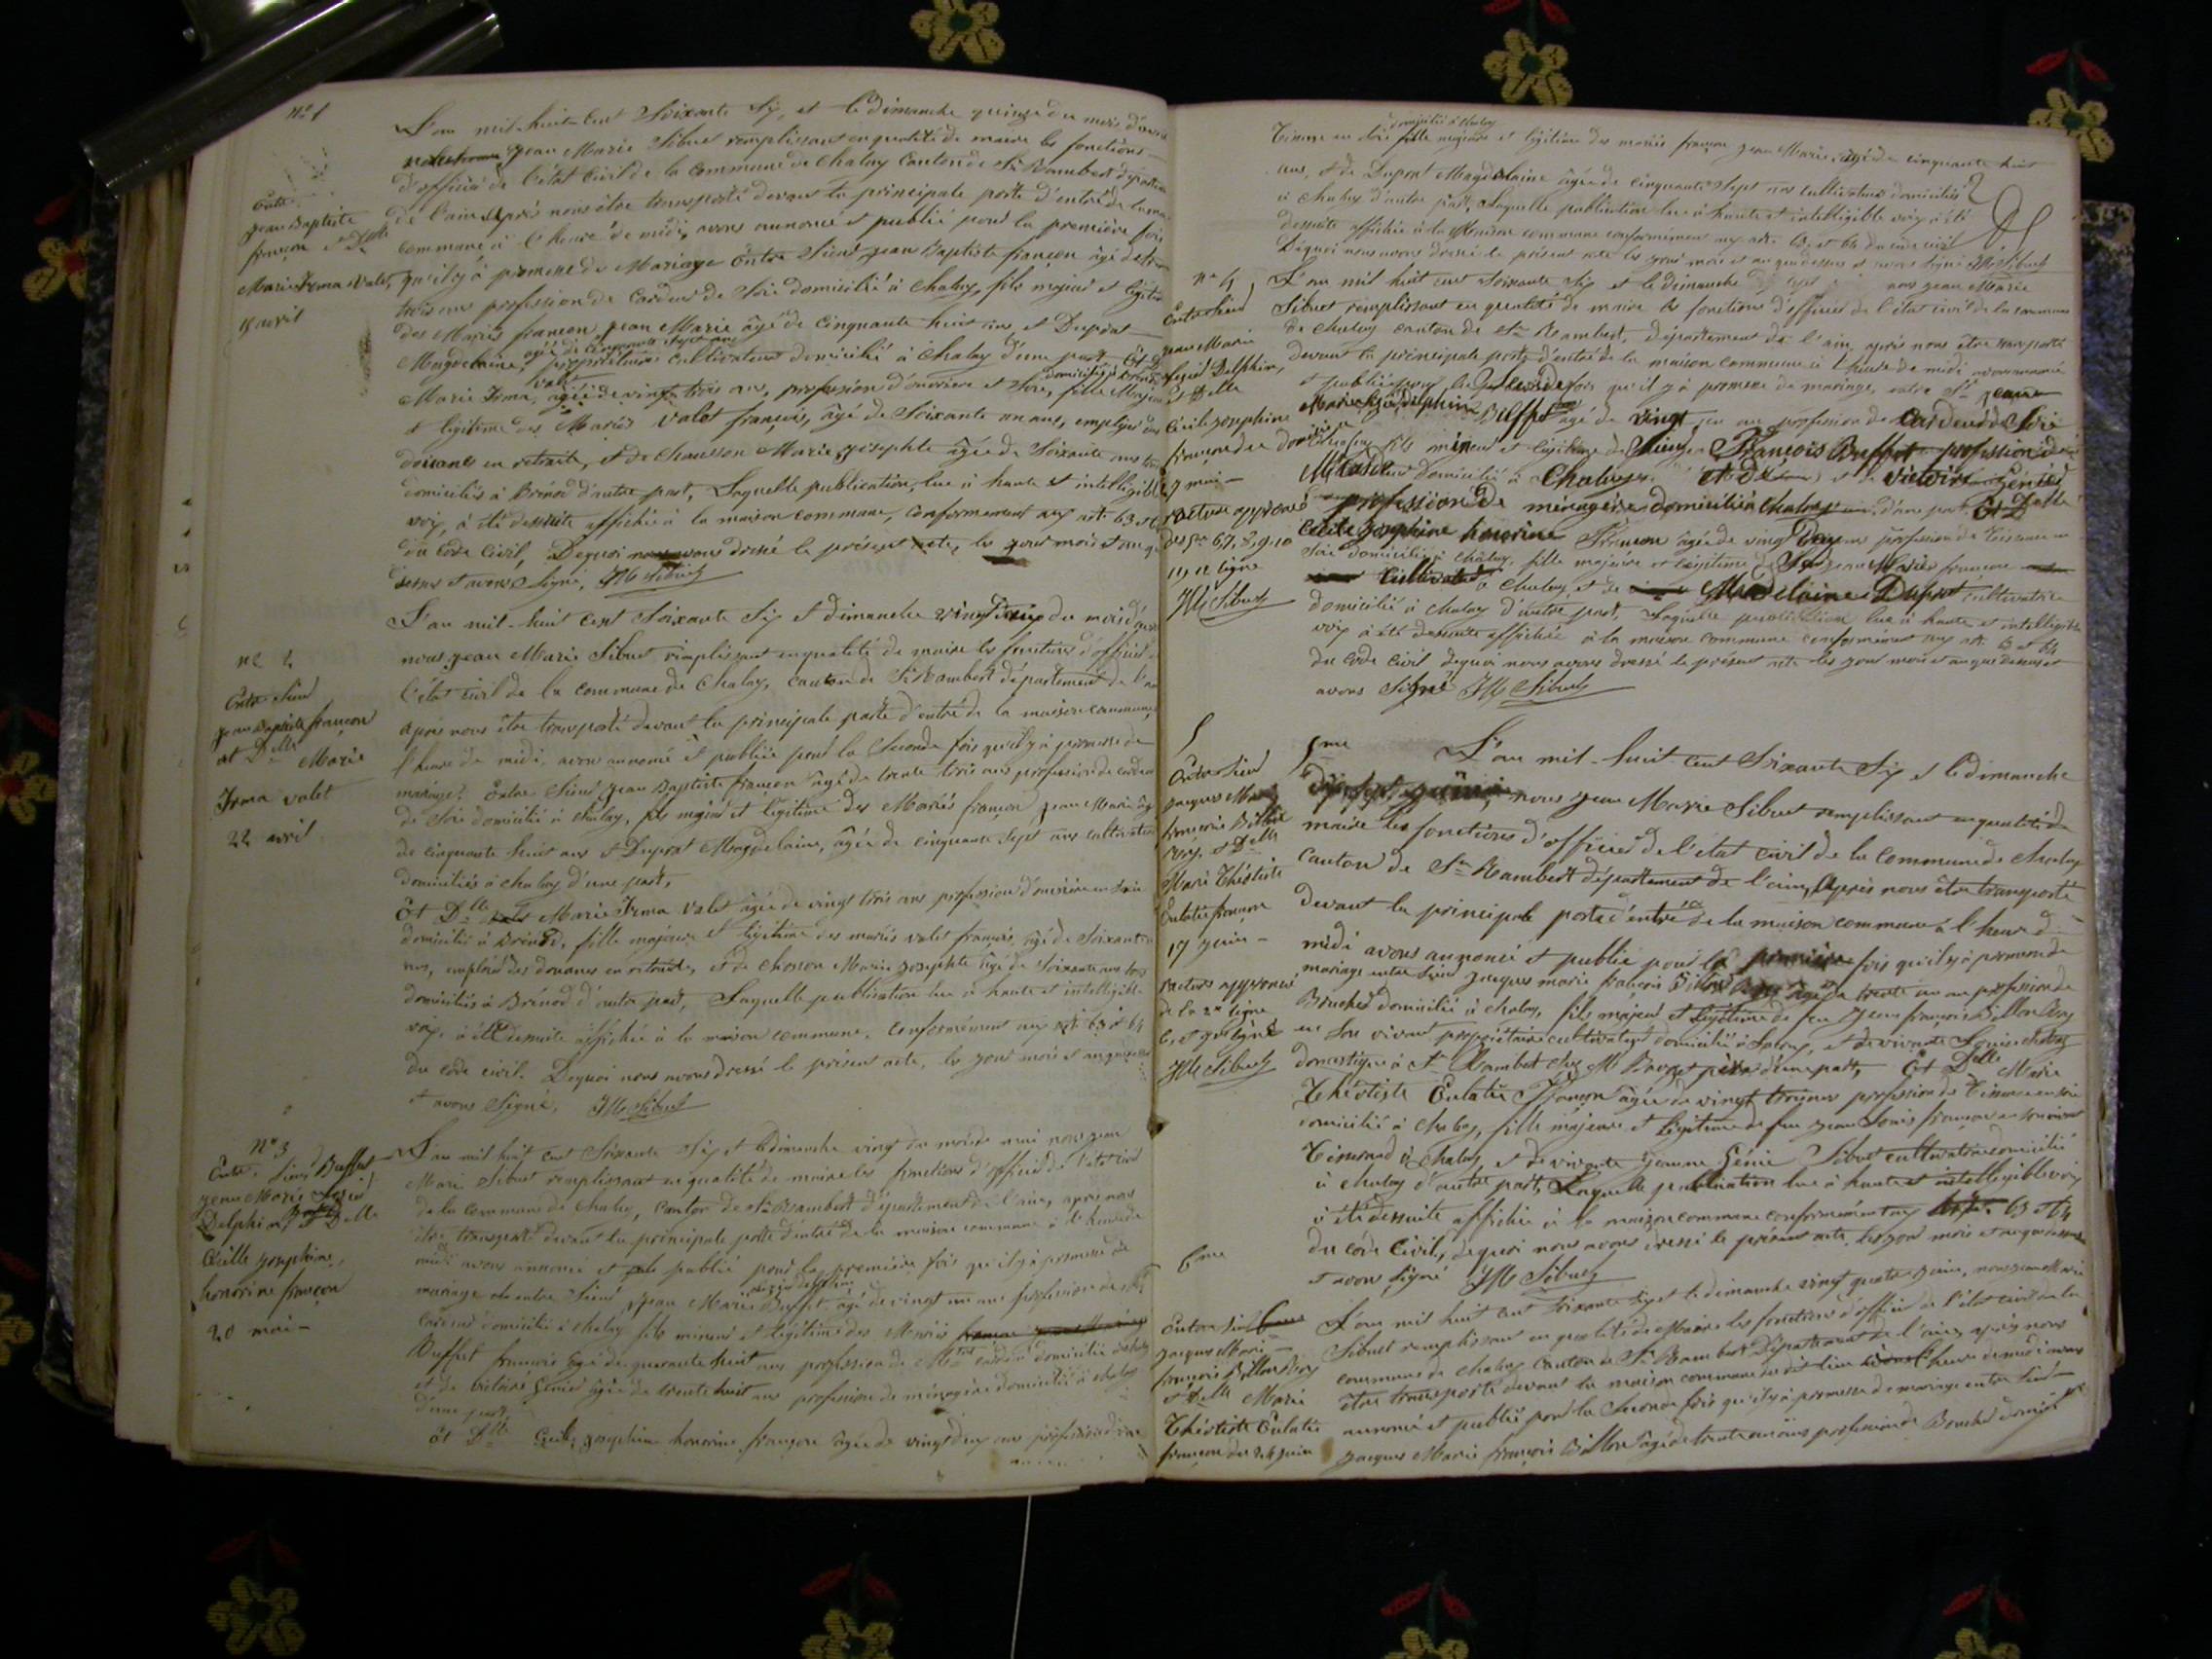 n° 1
Entre
jean Baptiste
françon et Delle
Marie Irma Valet,
15 avril
L'an mil-huit-cent Soixante Six, et le dimanche quinze du mois d'avril
nous jean Marie Sibuet remplissant en qualité de maire les fonctions
d'officié de l'état Civil de la commune de Chaley Canton de St Rambert départem
de l'ain, après nous être transporté devant la principale porte d'entré de la ma
commune à l'heure de midi, avons annoncé et publié pour la première fois
qu'il y à promesse de Mariage Entre Sieur jean Baptiste françon âgé de trente
trois ans profession de Cardeur de Soie domicilié à Chaley, fils majeur et légitime
des Mariés françon jean Marie âgé de Cinquante huit ans, et Duprat
âgée de cinquante sept ans
Magdelaine, propriétaires Cultivateurs domicilié à Chaley d'une part, Et D
valet domiciliée à Brénod
Marie Irma, âgée de vingt trois ans, profession d'ouvrière et Soie, fille Majeure
et légitime des Mariés Valet françois, âgé de Soixante un ans, employé des
doisanes en retraite, et de Chausson Marie josephte âgée de Soixante ans tous
domiciliés à Brénod d'autre part, Laquelle publication, lue à haute et intelligible
voix, à été dessuite affichée à la maison commune, Conformément aux art. 63 et 64
du Code Civil, Dequoi nous avons dressé le présent acte, les jour mois et an que
dessus et avons Signé, JM Sibuet
n° 2
Entre Sieur
jean Baptiste françon
et Delle Marie
Irma valet
22 avril
L'an mil-huit cent Soixante Six et dimanche vingt deux du mois d'avril
nous jean Marie Sibuet remplissant en qualité de maire les fonctions d'officié
l'état civil de la commune de Chaley, canton de St Rambert département de l'ain
après nous être transporté devant la principale porte d'entré de la maison commune
l'heure de midi, avons annoncé et publiée pour la Seconde fois qu'il y à promesse de
mariage: Entre Sieur jean Baptiste françon âgé de trente trois ans profession de cardeur
de Soie domicilié à Chaley, fils majeur et légitime des Mariés françon jean Marie âgé
de cinquante huit ans et Duprat Magdelaine, âgée de cinquante Sept ans cultivateurs
domiciliés à Chaley d'une part,
Et Dlle Marie Irma Valet âgée de vingt trois ans profession d'ouvrière en Soie
domicilié à Brénod, fille majeure et légitime des mariés valet françois, âgé de Soixante
ans, employé des douanes en retraite, et de Chosson Marie josephte âgé de Soixante ans tous
domiciliés à Brénod d'autre part, Laquelle publication lue à haute et intelligible
voix, à été dessuite affichée à la maison commune, conformément aux art. 63 et 64
du code civil. Dequoi nous avons dressé le présent acte, les jour mois et an que
et avons Signé, JM Sibuet
N° 3
Entre Sieur Buffet
jean Marie
Delphin et Delle
Cécille josephine,
honorine françon
20 mai
L'an mil huit cent Soixante Six et le dimanche vingt du mois de mai nous jean
Marie Sibuet remplissant en qualité de maire les fonctions d'officié de l'état civil
de la commune de Chaley, canton de St Rambert département de l'ain, après nous
être transporté devant la principale porte d'entré de la maison commune à l'heure de
midi avons annoncé et publié pour la première fois qu'il y à promesse de
mariage entre Sieur jean Marie Buffet, âgé de vingt un ans profession de
cardeur domicilié à Chaley fils mineur et légitime des Mariés
Buffet françois âgé de quarante huit ans profession de domicilié à Chaley
et de victoire Génier âgée de trente huit ans profession de ménagère domicilié à Chaley
d'une part
Et Dlle Cécile, josephine honorine françon âgée de vingt deux ans profession de
domiciliée à Chaley
Tisseuse en Soie fille majeure et légitime des mariés françon jean Marie, âgé de cinquante huit
ans, et de Duprat Magdelaine âgée de cinquante Sept ans cultivateurs domiciliés
à Chaley d'autre part, Laquelle publication lue à haute et intelligible voix à été
dessuite affichée à la Maison commune conformément aux art. 63 et 64 du code civil
Dequoi nous avons dressé le présent acte les jour mois et an que dessus et avons Signé JM Sibuet
n° 4
Entre Sieur
jean Marie
Delphin,
et Delle
Cécile josephine
françon du
27 mai
rature approuvé
des 6. 7. 8. 9. 10
11, 12 ligne
JM Sibuet
L'an mil huit cent Soixante Six et le dimanche nous jean Marie
Sibuet remplissant en qualité de maire les fonctions d'officié de l'état civil de la commune
de Chaley canton de St Rambert, département de l'ain, après nous être transporté
devant la principale porte d'entré de la maison commune à l'heure de midi avons annoncé
et publié pour la Seconde fois qu'il y à promesse de mariage, entre Sr jean
Marie delphin Buffet âgé de vingt un ans profession de Cardeur de Soie
fils mineur et légitime de François Buffet profession de
domicilié à Chaley et de victoire Génier
profession de ménagère domicilié à Chaley d'une part Et Delle
Cécile Josephine honorine Françon âgée de vingt Deux ans profession de Tisseuse en
Soie domicilié à Chaley, fille majeure et légitime de jean Marie françon
Cultivateur à Chaley, et de Magdelaine Duprat cultivatrice
domicilié à Chaley d'autre part, Laquelle publication lue à haute et intelligible
voix à été dessuite affichée à la maison commune conformément aux art. 63 et 64
du Code Civil dequoi nous avons dressé le présent acte les jour mois et an que dessus et
avons Signé JM Sibuet
5
Entre Sieur
jacques Marie
françois Billon
et Delle
Marie Théotiste
Eulalie françon
17 juin
rature approuvé
de la 2e ligne
JM Sibuet
5me
L'an mil-huit cent Soixante Six et le dimanche
dix sept juin, nous jean Marie Sibuet remplissant en qualité de
maire les fonctions d'officié de l'état civil de la commune de Chaley
canton de St Rambert département de l'ain, Après nous être transporté
devant la principale porte d'entré de la maison commune à l'heure de
midi avons annoncé et publié pour la première fois qu'il y à promesse de
mariage entre Sieur jacques marie françois Billon âgé de trente un an profession de
Boucher domicilié à Chaley, fils majeur et légitime de feu jean françois Billon
en Son vivant propriétaire cultivateur domicilié à et de vivante Louise
domestique à St Rambert chez Mr père d'une part, Et Delle Marie
Théotiste Eulalie Françon âgée de vingt profession de Tisseuse en soie
domicilié à Chaley, fille majeure et légitime de feu jean Louis françon en son vivant
Tisserand à Chaley, et de vivante jeanne Génie Sibuet cultivatrice domicilié
à Chaley d'autre part, Laquelle publication lue à haute et intelligible voix
à été dessuite affichée à la maison commune conformément aux art. 63 et 64
du code Civil, dequoi nous avons dressé le présent acte les jour mois et an que dessus
et avons Signé JM Sibuet
6me
Entre Sieur
jacques Marie
françois Billon
et Delle Marie
Théotiste Eulalie
françon du 24 juin
L'an mil huit cent Soixante Six et le dimanche vingt quatre juin, nous jean Marie
Sibuet remplissant en qualité de Maire les fonctions d'officié de l'état civil de la
commune de Chaley Canton de St Rambert Département de l'ain, après nous
être transporté devant la maison commune dudit lieu heure de midi avons
annoncé et publié pour la Seconde fois qu'il y à promesse de mariage entre Sieur
jacques Marie françois Billon âgé de trente un ans profession de Boucher domicilié